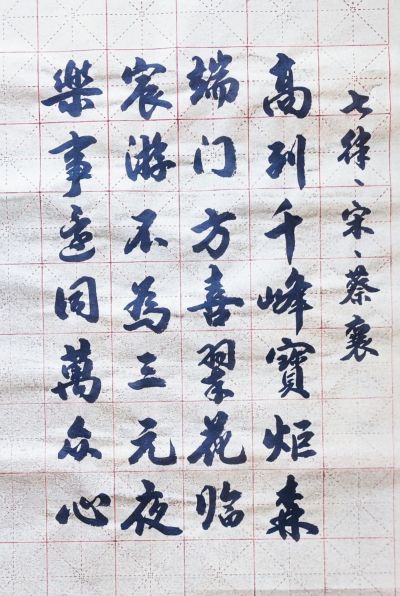 七律、宋、蔡襄
高列千峰寶炬森
端门方喜翠花临
宸游不為三元夜
樂事還同萬众心